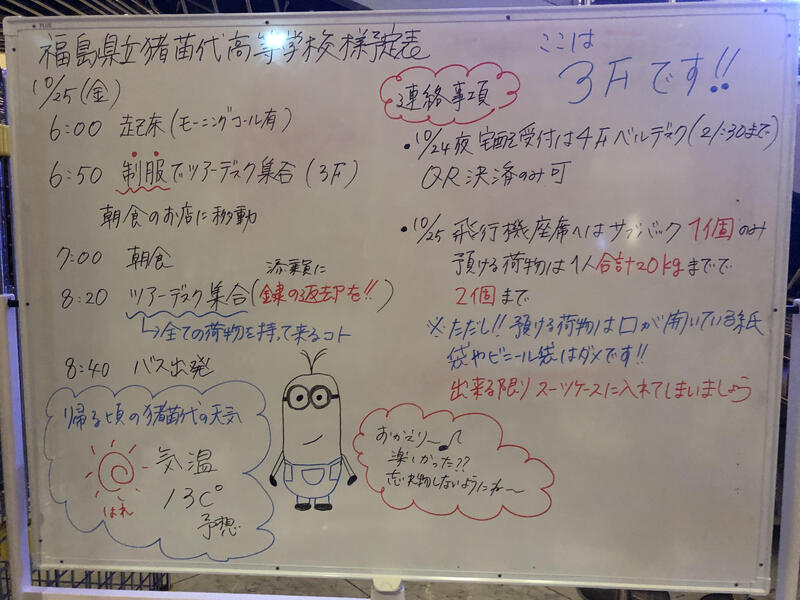 福島県立猪苗代高等学校様予定表
10/25(金)
6:00 起床(モーニングコール有)
6:50 制服でツアーデスク集合(3F)
朝食のお店に移動
7:00 朝食
8:20 ツアーデスク集合(添乗員に鍵の返却を!!)
↳全ての荷物を持って来るコト
8:40 バス出発
帰る頃の猪苗代の天気
はれ
気温
13C°
予想
ここは
3Fです!!
連絡事項
・10/24夜 宅配受付は4Fベルデスク(21:30まで)
QR決済のみ可
・10/25 飛行機座席へはサブバック1個のみ
預ける荷物は1人合計20kgまでで
2個まで
※ただし!!預ける荷物は口が開いている紙
袋やビニール袋はダメです!!
出来る限りスーツケースに入れてしまいましょう
おかえり〜♪
楽しかった??
忘れ物しないようにね〜